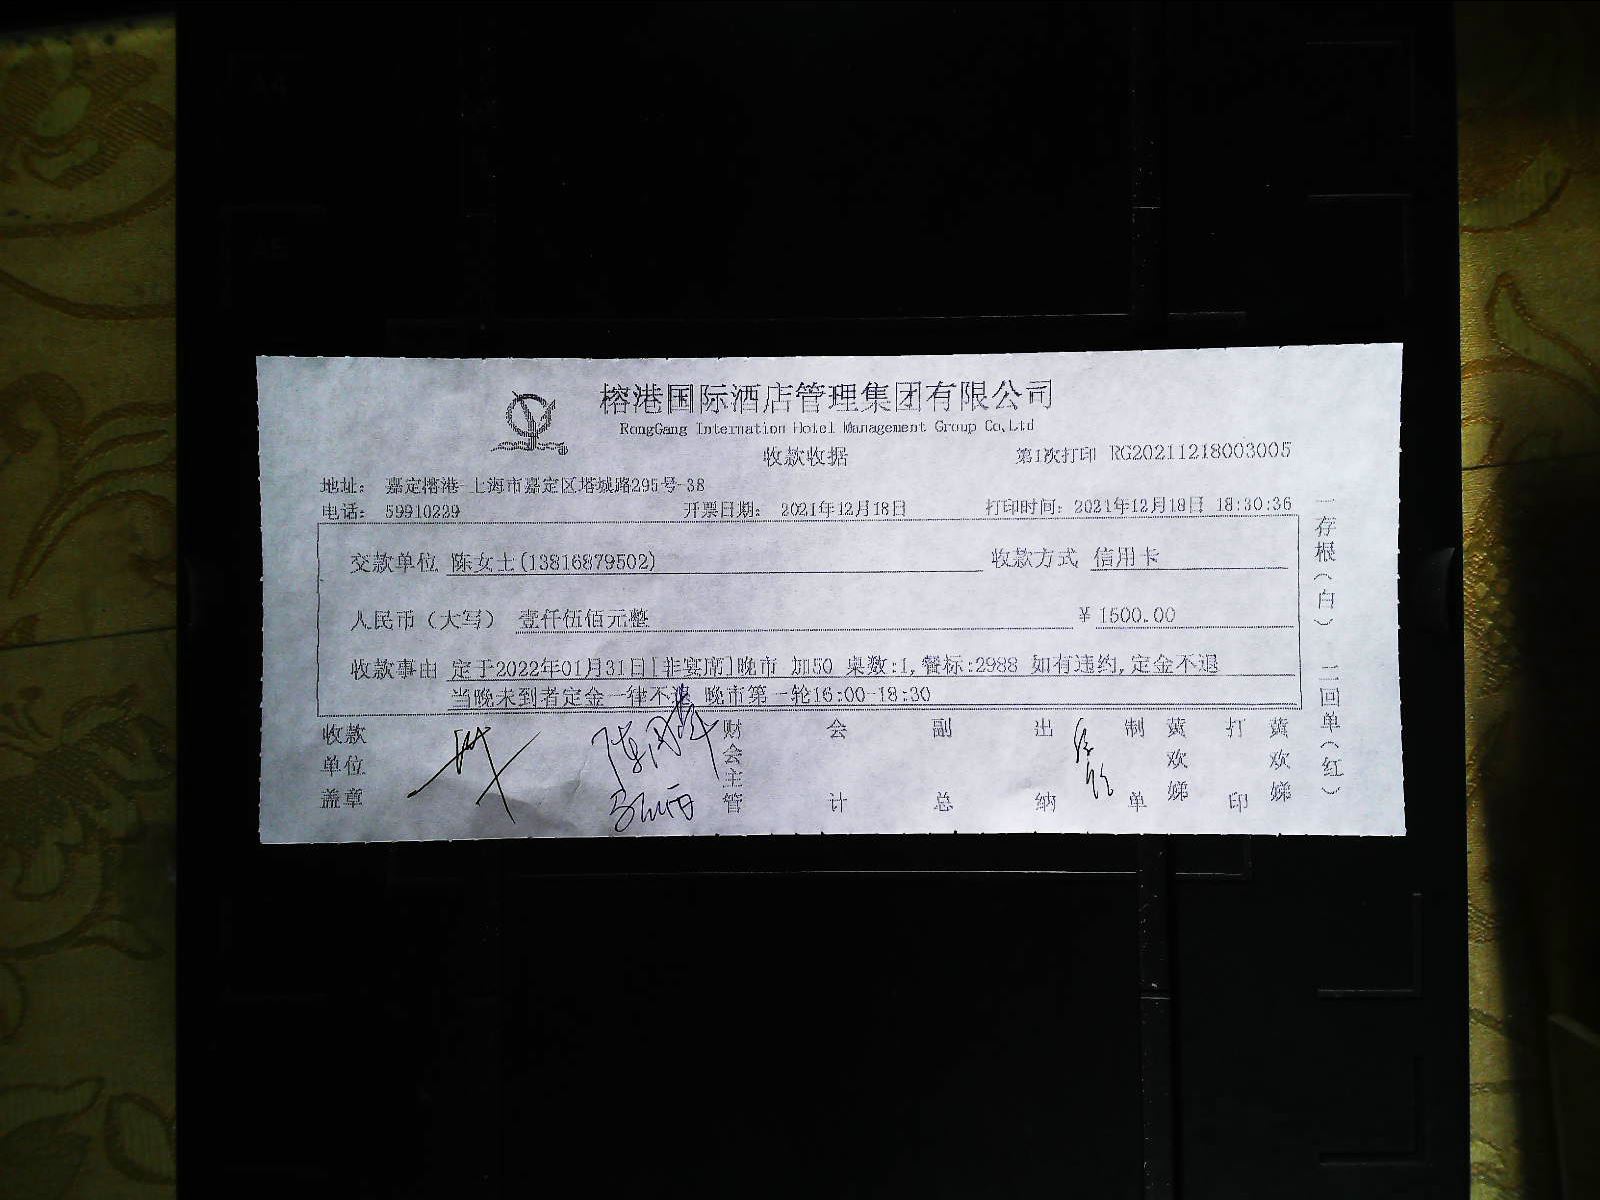 榕港国际酒店管理集团有限公司
RongGang Internation Hotel Management Group Co,Ltd
收款收据
第1次打印 RG20211218003005
地址: 嘉定榕港-上海市嘉定区塔城路295号-38
电话: 59910229 开票日期: 2021年12月18日 打印时间: 2021年12月18日 18:30:36
交款单位 陈女士(13816879502) 收款方式 信用卡
人民币（大写） 壹仟伍佰元整 ¥ 1500.00
收款事由 定于2022年01月31日[非宴席]晚市 加50 桌数:1,餐标:2988 如有违约,定金不退
当晚未到者定金一律不退 晚市第一轮16:00-18:30
收款单位盖章 财会主管 会计 副总 出纳 制单 黄欢娣 打印 黄欢娣
一存根(白) 二回单(红)